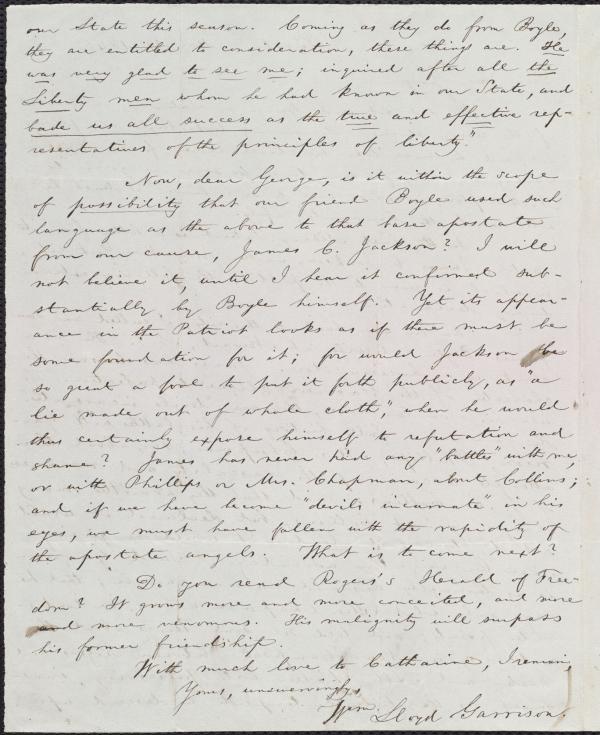 our State this season. Coming as they do from Boyle,
they are entitled to consideration, these things are. He
was very glad to see me; inquired after all the
Liberty men whom he had known in our State, and
bade us all success as the true and effective rep-
resentatives of the principles of liberty."
Now, dear George, is it within the scope
of possibility that our friend Boyle used such
language as the above to that base apostate
from our cause, James C. Jackson? I will
not believe it, until I hear it confirmed sub-
stantially by Boyle himself. Yet its appear-
ance in the Patriot looks as if there must be
some foundation for it; for would Jackson be
so great a fool to put it forth publicly, as "a
lie made out of whole cloth," when he would
thus certainly expose himself to refutation and
shame? James has never had any "battles" with me,
or with Phillips or Mrs. Chapman, about Collins;
and if we have become "devils incarnate" in his
eyes, we must have fallen with the rapidity of
the apostate angels. What is to come next?
Do you read Rogers's Herald of Free-
dom? It grows more and more conceited, and more
and more venomous. His malignity will surpass
his former friendship.
With much love to Catharine, I remain,
Yours, unswervingly,
Wm. Lloyd Garrison.